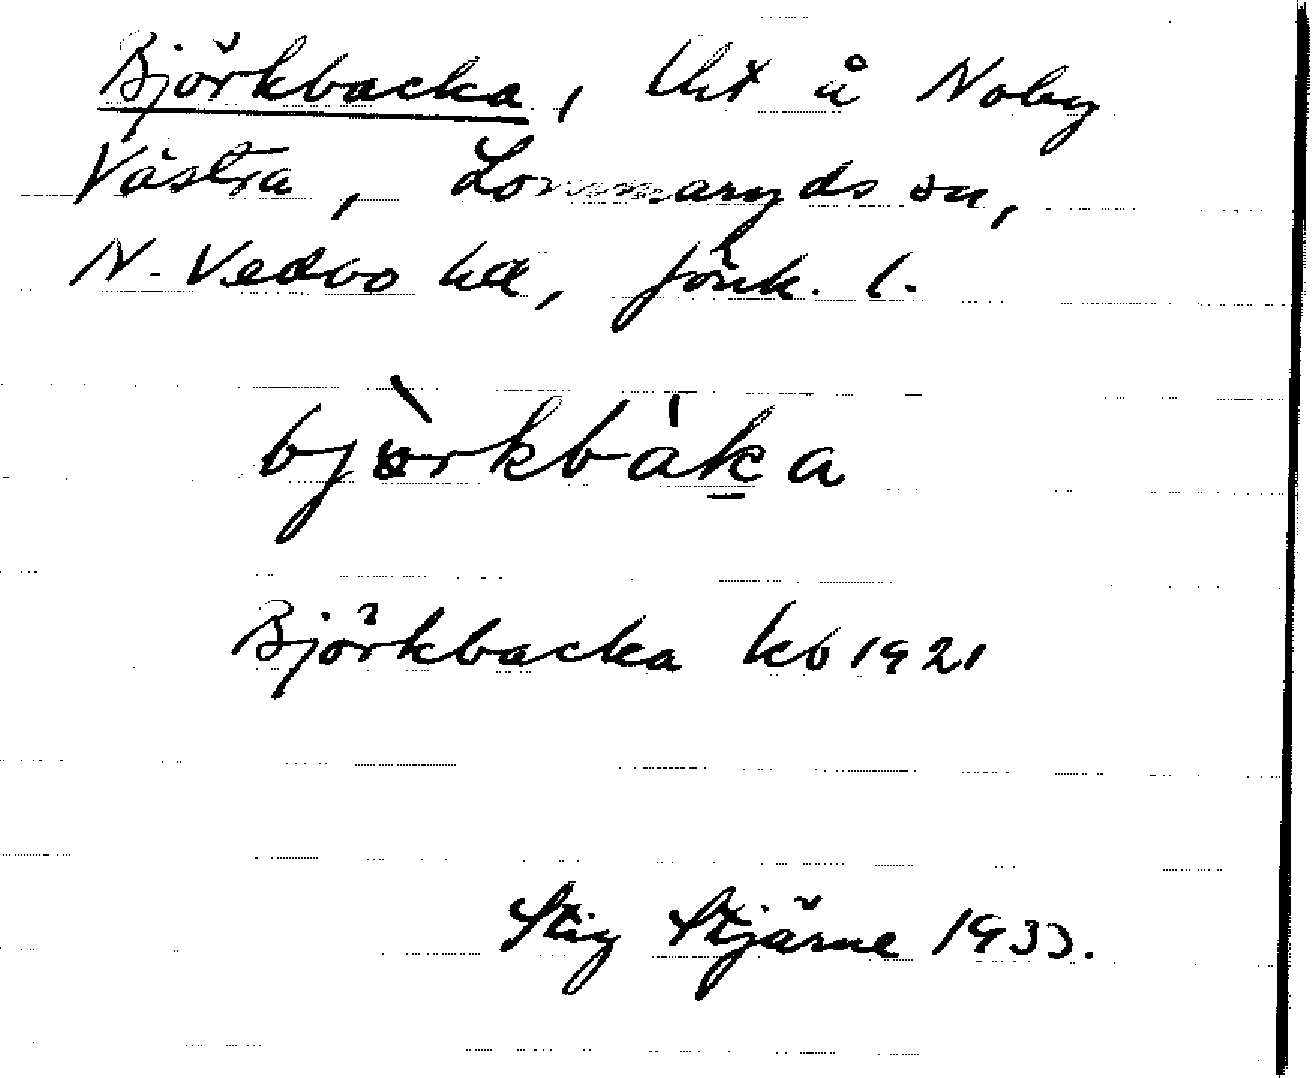 Björkbacka, lht å Noby
Västra, Lommaryds sn,
N. Vedbo hd, Jönk. l.
bjòrkbáka
Björkbacka kb 1921
Stig Stjärne 1933.